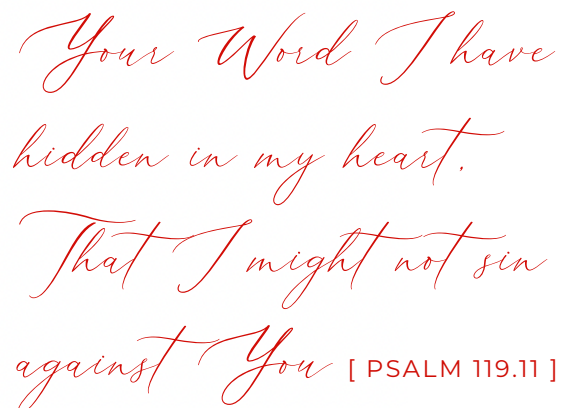 Your Word I have
hidden in my heart,
That I might not sin
against You [ PSALM 119.11 ]